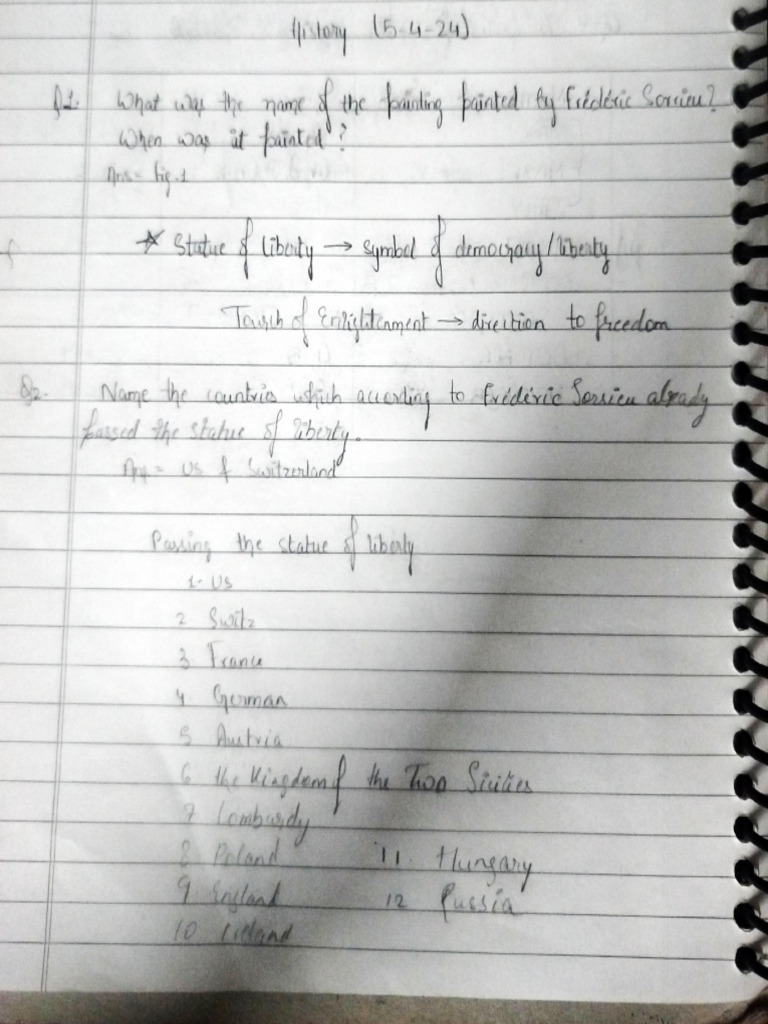 History (5-4-24)
Q1. What was the name of the painting painted by Frédéric Sorrieu?
When was it painted?
Ans = Fig.1
★ Statue of liberty → symbol of democracy/liberty
Tourch of Enlightenment → direction to freedom
Q2. Name the countries which according to Frédéric Sorrieu already
passed the statue of liberty.
Ans = US & Switzerland
Passing the statue of liberty
1- US
2 Switz
3 France
4 German
5 Austria
6 the Kingdom of the Two Sicilies
7 Lombardy
8 Poland 11. Hungary
9 England 12 Russia
10 Ireland